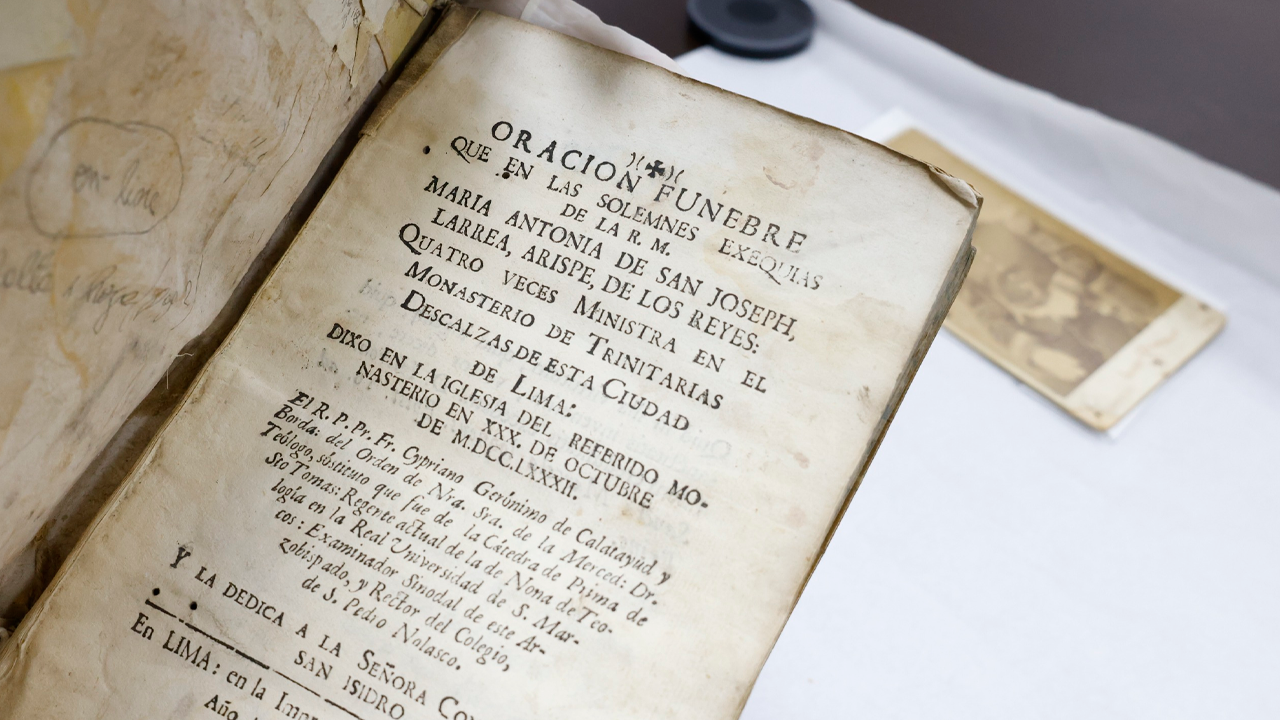 en line
ORACION FUNEBRE
QUE EN LAS SOLEMNES EXEQUIAS
DE LA R. M.
MARIA ANTONIA DE SAN JOSEPH,
LARREA, ARISPE, DE LOS REYES:
QUATRO VECES MINISTRA EN EL
MONASTERIO DE TRINITARIAS
DESCALZAS DE ESTA CIUDAD
DE LIMA:
DIXO EN LA IGLESIA DEL REFERIDO MO-
NASTERIO EN XXX. DE OCTUBRE
DE M.DCC.LXXXII.
El R. P. Pr. Fr. Cypriano Gerónimo de Calatayud y
Borda: del Orden de Nra. Sra. de la Merced: Dr.
Teólogo, sóstituto que fue de la Cátedra de Prima de
Sto Tomas: Regente actual de la de Nona de Teo-
logia en la Real Universidad de S. Mar-
cos: Examinador Sinodal de este Ar-
zobispado, y Rector del Colegio,
de S. Pedro Nolasco.
Y LA DEDICA A LA SEÑORA
SAN ISIDRO
En LIMA: en la
Año